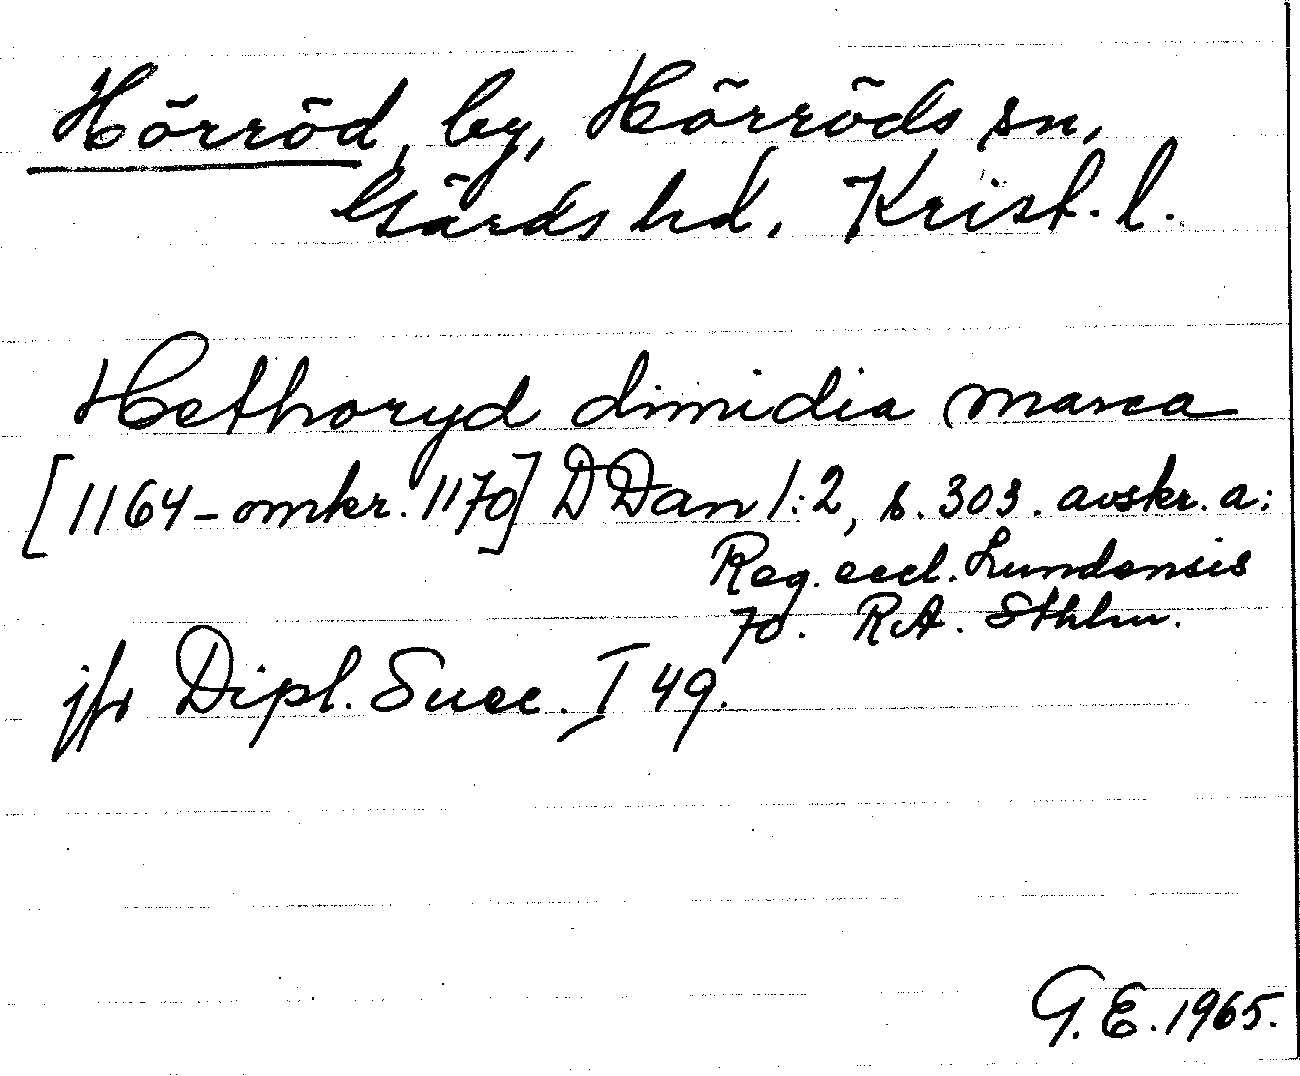 Hörröd, by, Hörröds sn,
Gärds hd, Krist. l.
Hethoryd dimidia marca
[1164-omkr. 1170] DDan 1:2, s. 303. avskr. a:
Reg. eccl. Lundensis
70. RA. Sthlm.
jfr Dipl. Suec. I 49.
G. E. 1965.